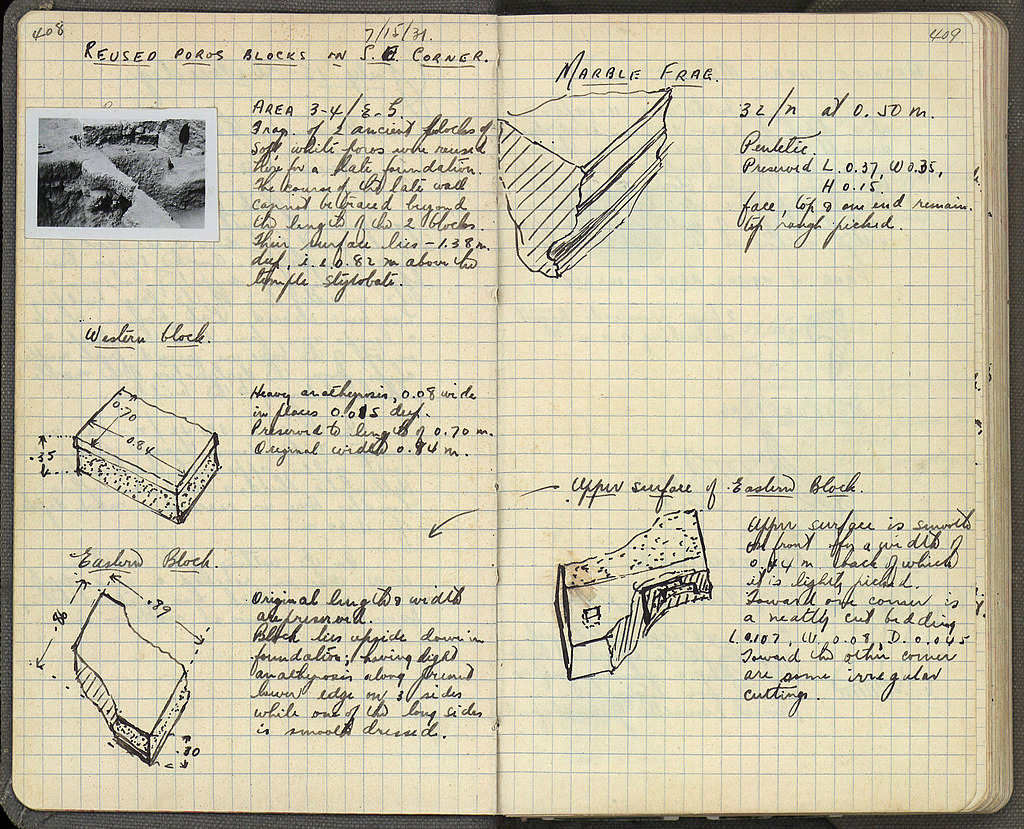 408
7/15/31.
REUSED POROS BLOCKS IN S.E. CORNER.
AREA 3-4/E-
Frag. of 2 ancient blocks of
soft white poros were reused
here for a late foundation.
The course of the late wall
cannot be traced beyond
the length of the 2 blocks.
Their surface lies -1.38 m.
deep, i.e. 0.82 m above the
temple stylobate.
Western block.
0.70
0.84
.35
Heavy anathyrosis, 0.08 wide
in places 0.015 deep.
Preserved to length of 0.70 m.
Original width 0.84 m.
Eastern Block.
.89
.86
.30
Original length & width
are preserved.
Block lies upside down in
foundation; having light
anathyrosis along
lower edge on 3 sides
while one of the long sides
is smooth dressed.
409
MARBLE FRAG.
32/n at 0.50 m.
Pentelic.
Preserved L. 0.37, W 0.35,
H 0.15.
face, top & one end remain.
top rough picked.
Upper surface of Eastern Block.
Upper surface is smooth
on front for a width of
0.44 m back of which
it is lightly picked.
Toward one corner is
a neatly cut bedding
L. 0.107, W. 0.08, D. 0.045
Toward the other corner
are some irregular
cuttings.